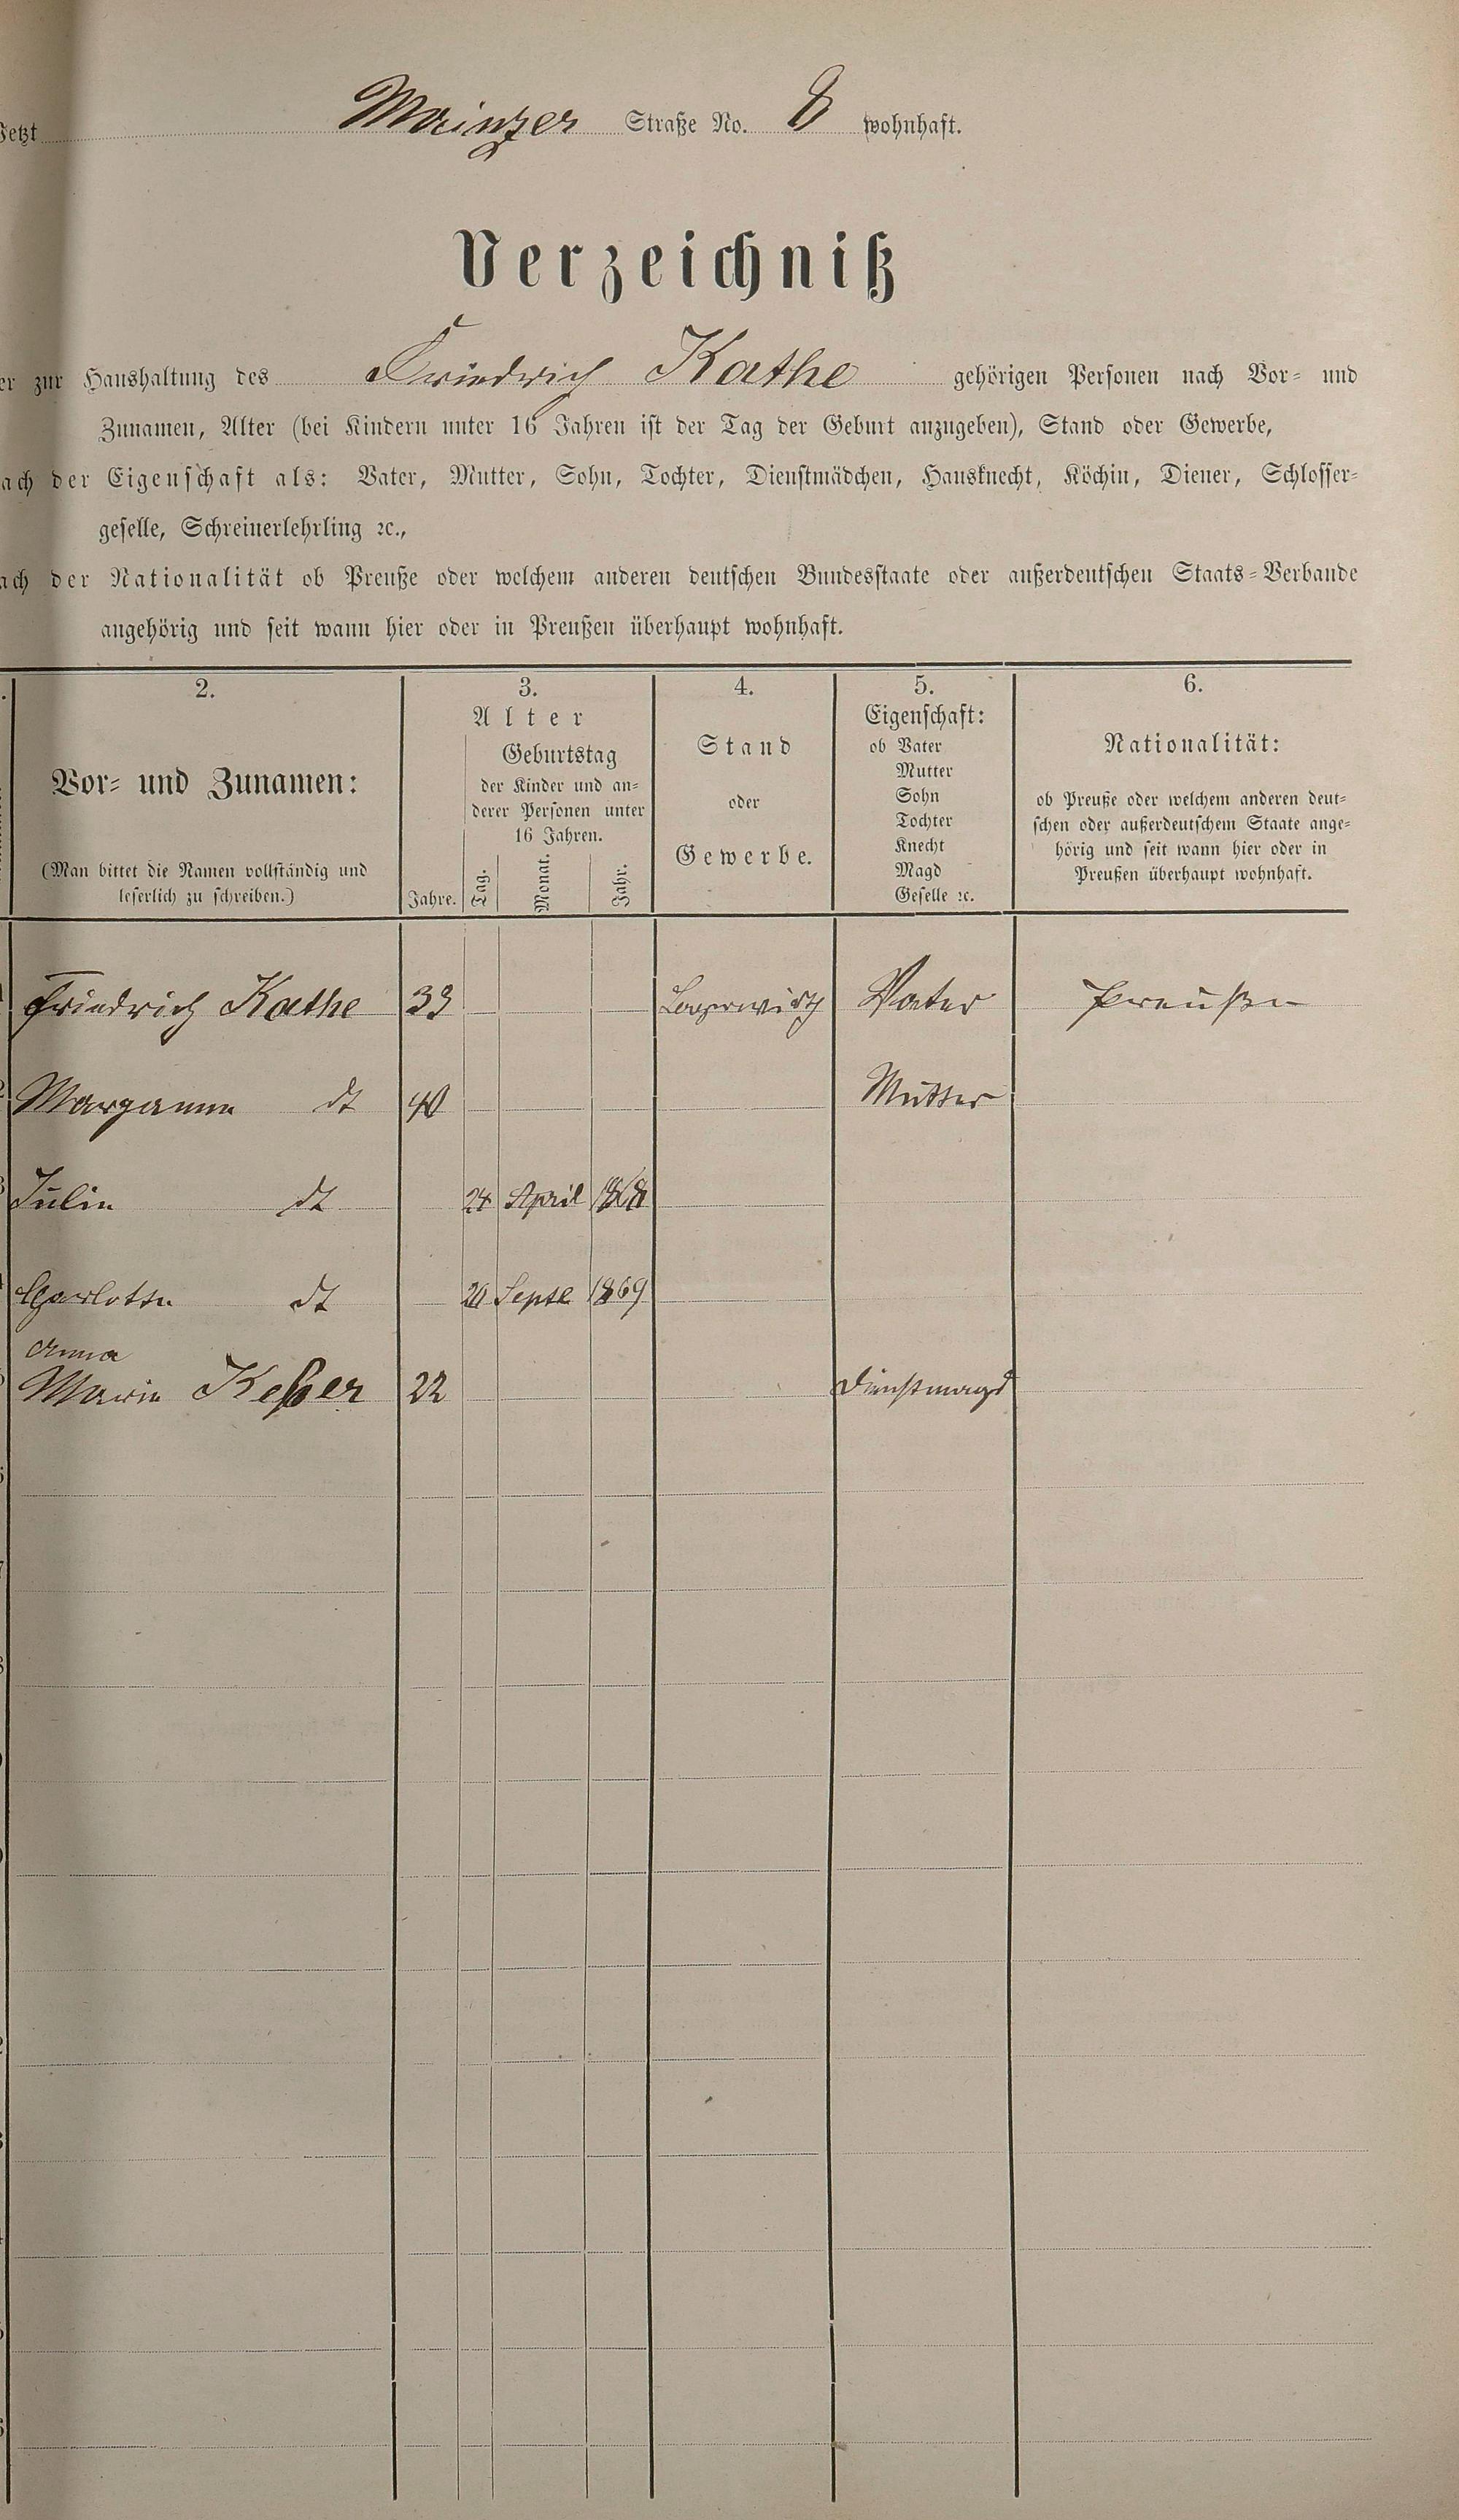 Jetzt Mainzer Straße No. 8 wohnhaft.
Verzeichniß
er zur Haushaltung des Friedrich Kathe gehörigen Personen nach Vor- und
Zunamen, Alter (bei Kindern unter 16 Jahren ist der Tag der Geburt anzugeben), Stand oder Gewerbe,
ach der Eigenschaft als: Vater, Mutter, Sohn, Tochter, Dienstmädchen, Hausknecht, Köchin, Diener, Schlosser-
geselle, Schreinerlehrling ꝛc.,
ach der Nationalität ob Preuße oder welchem anderen deutschen Bundesstaate oder außerdeutschen Staats-Verbande
angehörig und seit wann hier oder in Preußen überhaupt wohnhaft.
2.
Vor- und Zunamen:
(Man bittet die Namen vollständig und
leserlich zu schreiben.)
3.
Alter
Geburtstag
der Kinder und an-
derer Personen unter
16 Jahren.
Jahre. Tag. Monat. Jahr.
4.
Stand
oder
Gewerbe.
5.
Eigenschaft:
ob Vater
Mutter
Sohn
Tochter
Knecht
Magd
Geselle ꝛc.
6.
Nationalität:
ob Preuße oder welchem anderen deut-
schen oder außerdeutschem Staate ange-
hörig und seit wann hier oder in
Preußen überhaupt wohnhaft.
Friedrich Kathe 33 Vater Preußen
dt 40 Mutter
Julie dt 24 April 1868
Charlotte dt 20 Septe 1869
Anna
Marie Keßer 22 Dienstmagd